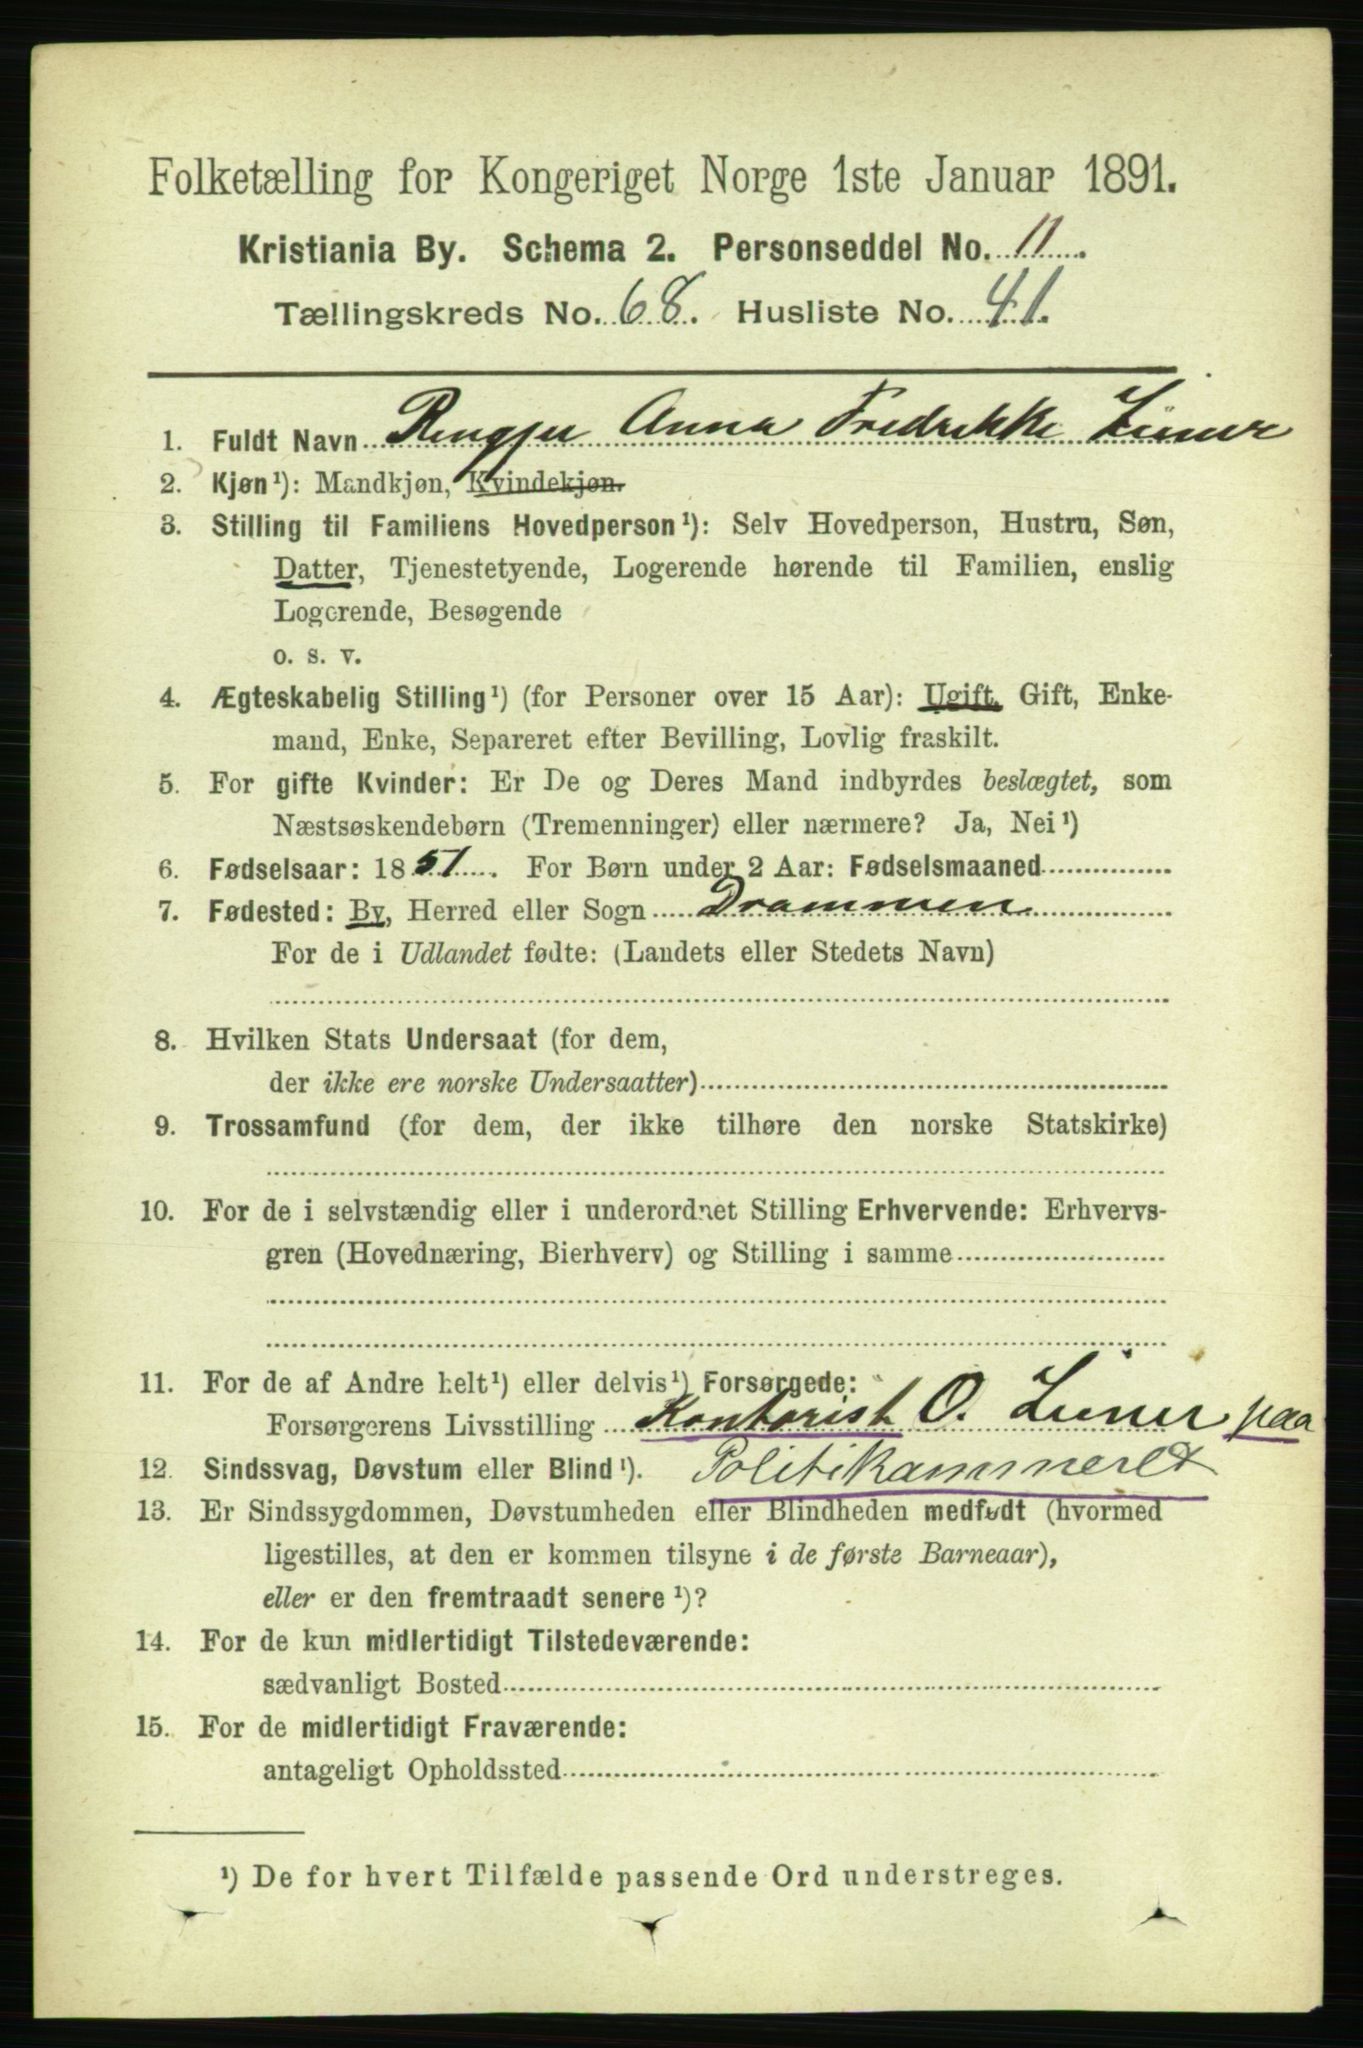 Folketælling for Kongeriget Norge 1ste Januar 1891.
Kristiania By. Schema 2. Personseddel No. 11.
Tællingskreds No. 68. Husliste No. 41.
1. Fuldt Navn Anna Fredrikke
2. Kjøn¹): Mandkjøn, Kvindekjøn.
3. Stilling til Familiens Hovedperson¹): Selv Hovedperson, Hustru, Søn,
Datter, Tjenestetyende, Logerende hørende til Familien, enslig
Logerende, Besøgende
o. s. v.
4. Ægteskabelig Stilling¹) (for Personer over 15 Aar): Ugift, Gift, Enke-
mand, Enke, Separeret efter Bevilling, Lovlig fraskilt.
5. For gifte Kvinder: Er De og Deres Mand indbyrdes beslægtet, som
Næstsøskendebørn (Tremenninger) eller nærmere? Ja, Nei¹)
6. Fødselsaar: 1851. For Børn under 2 Aar: Fødselsmaaned
7. Fødested: By, Herred eller Sogn Drammen
For de i Udlandet fødte: (Landets eller Stedets Navn)
8. Hvilken Stats Undersaat (for dem,
der ikke ere norske Undersaatter)
9. Trossamfund (for dem, der ikke tilhøre den norske Statskirke)
10. For de i selvstændig eller i underordnet Stilling Erhvervende: Erhvervs-
gren (Hovednæring, Bierhverv) og Stilling i samme
11. For de af Andre helt¹) eller delvis¹) Forsørgede:
Forsørgerens Livsstilling Kontorist O. paa
12. Sindssvag, Døvstum eller Blind¹). Politikammeret
13. Er Sindssygdommen, Døvstumheden eller Blindheden medfødt (hvormed
ligestilles, at den er kommen tilsyne i de første Barneaar),
eller er den fremtraadt senere¹)?
14. For de kun midlertidigt Tilstedeværende:
sædvanligt Bosted
15. For de midlertidigt Fraværende:
antageligt Opholdssted
¹) De for hvert Tilfælde passende Ord understreges.